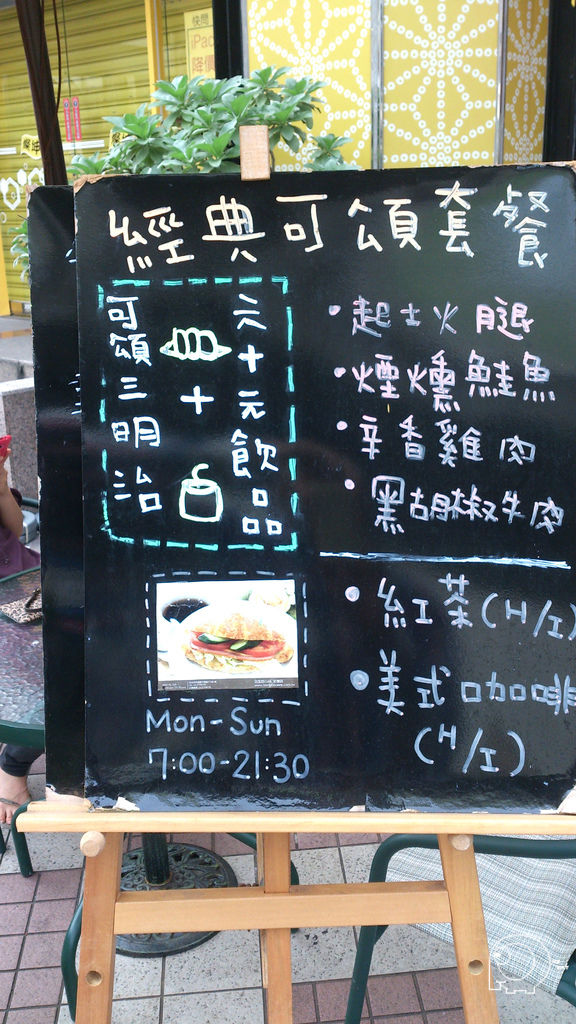 經典可頌套餐
可頌三明治
+
六十元飲品
·起士火腿
·煙燻鮭魚
·辛香雞肉
·黑胡椒牛肉
·紅茶(H/I)
·美式咖啡
(H/I)
Mon-Sun
7:00-21:30